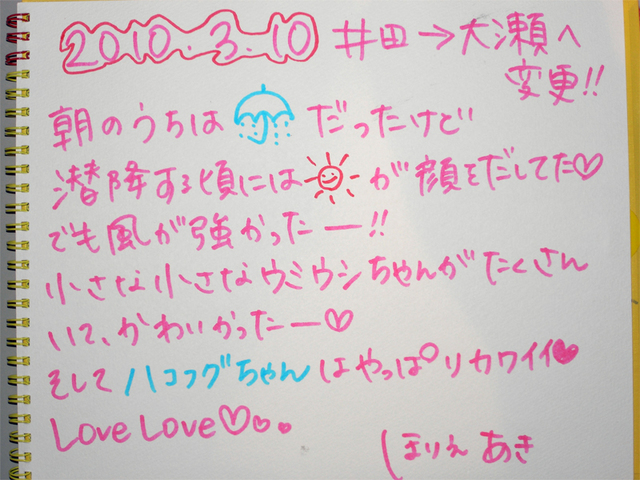 2010.3.10 井田→大瀬へ
変更!!
朝のうちは☂だったけど
潜降する頃には☀が顔をだしてた♡
でも風が強かったー!!
小さな小さなウミウシちゃんがたくさん
いて、かわいかったー♡
そしてハコフグちゃんはやっぱりカワイイ♥
Love Love♡♡♥
ほりえ あき